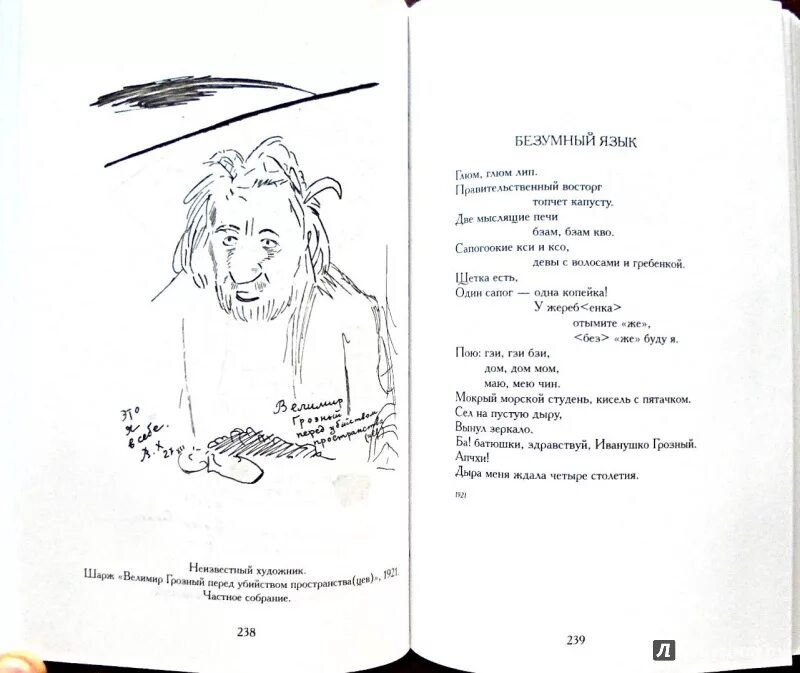 Велимир
Грозный
перед убийством
пространства
(цев)
Это
я
в себе.
В.Х
27 XII
Неизвестный художник.
Шарж «Велимир Грозный перед убийством пространства(цев)», 1921.
Частное собрание.
238
БЕЗУМНЫЙ ЯЗЫК
Глюм, глюм лип.
Правительственный восторг
топчет капусту.
Две мыслящие печи
бзам, бзам кво.
Сапогоокие кси и ксо,
девы с волосами и гребенкой.
Щетка есть,
Один сапог — одна копейка!
У жереб<енка>
отымите «же»,
<без> «же» буду я.
Пою: гзи, гзи бзи,
дом, дом мом,
маю, мею чин.
Мокрый морской студень, кисель с пятачком.
Сел на пустую дыру,
Вынул зеркало.
Ба! батюшки, здравствуй, Иванушко Грозный.
Апчхи!
Дыра меня ждала четыре столетия.
1921
239
Л